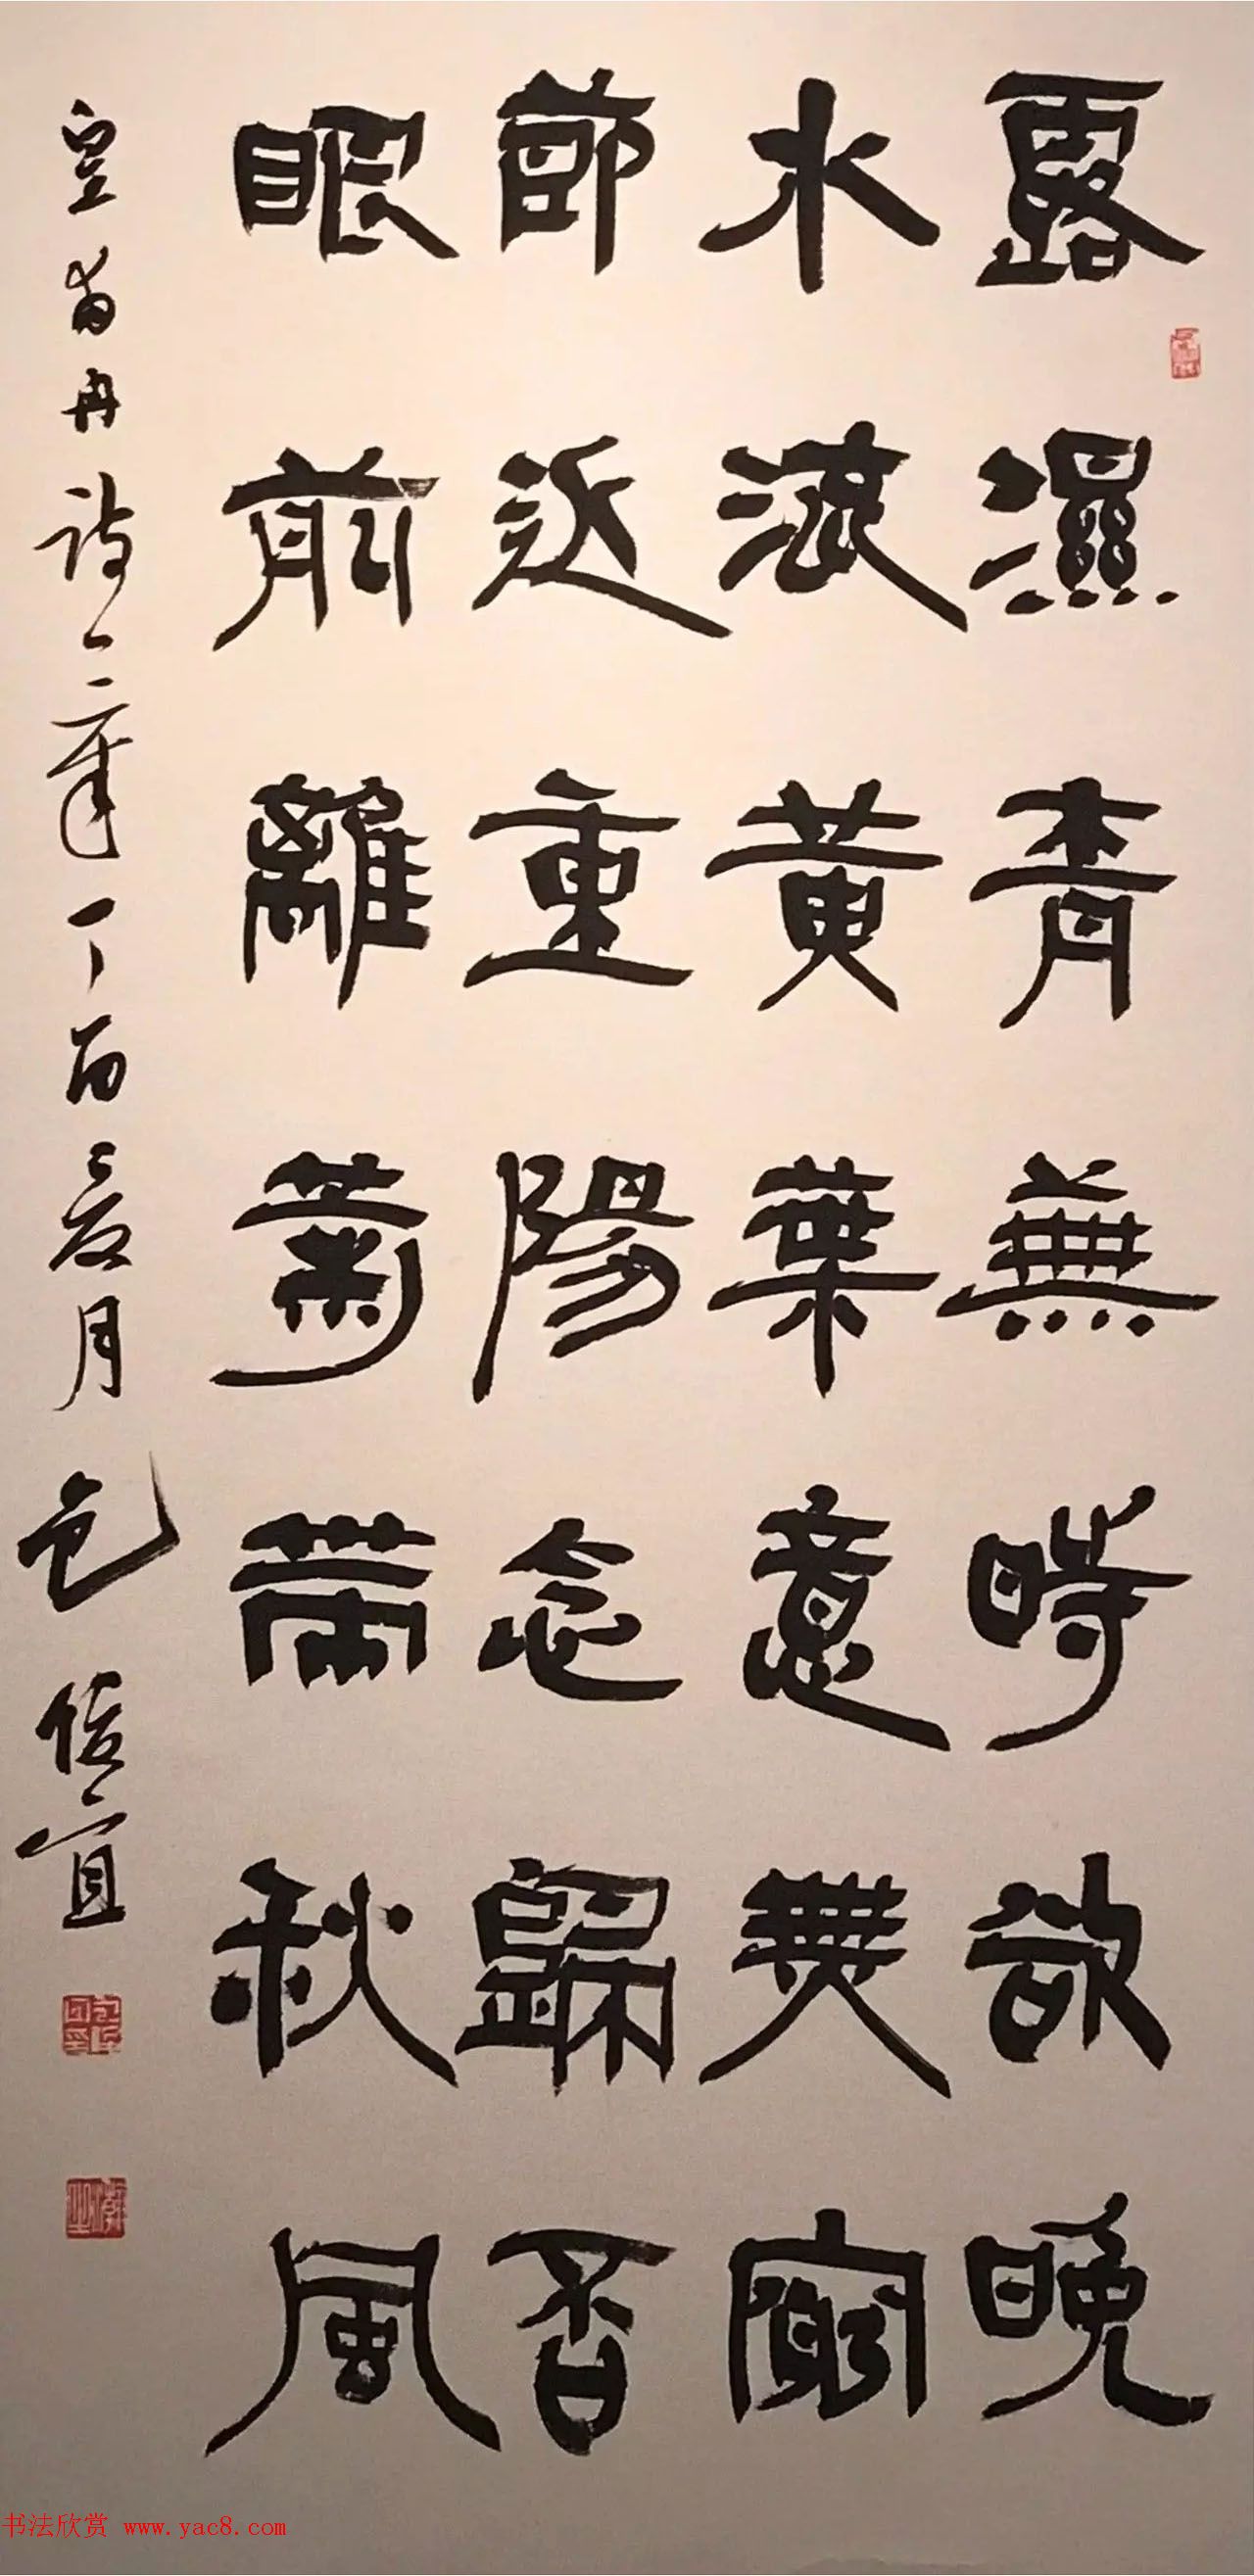 露濕青蕪時欲晚
水流黃葉意無窮
節近重陽念歸否
眼前籬菊帶秋風
皇甫冉詩一章丁酉夏月
信宜
书法欣赏 www.yac8.com